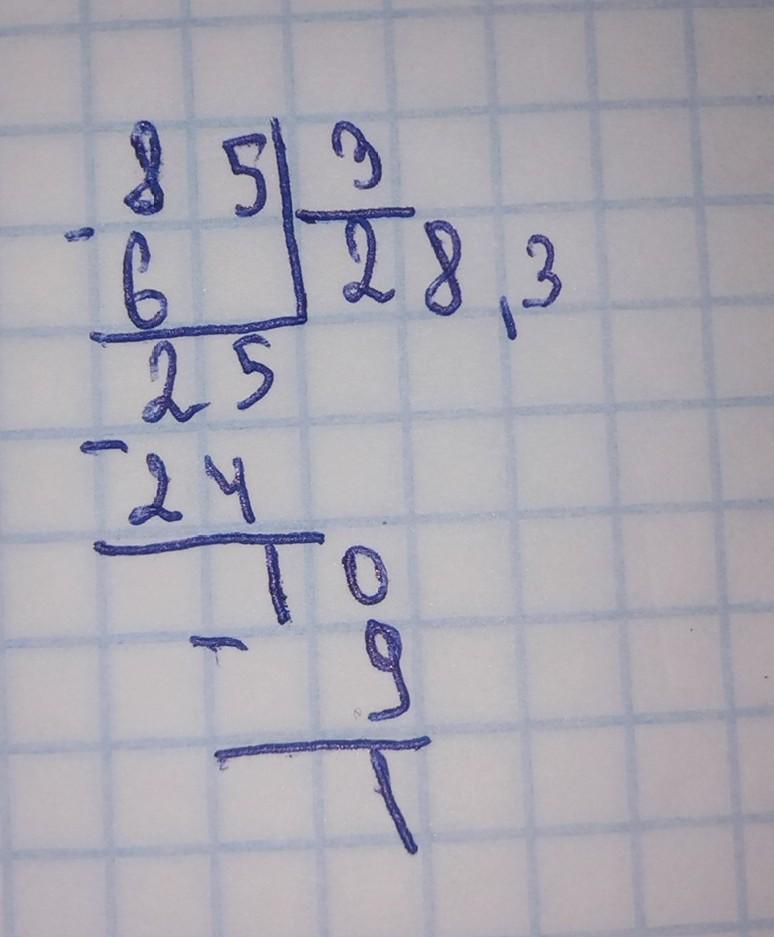 85 3
- 6 28,3
25
- 24
10
- 9
1